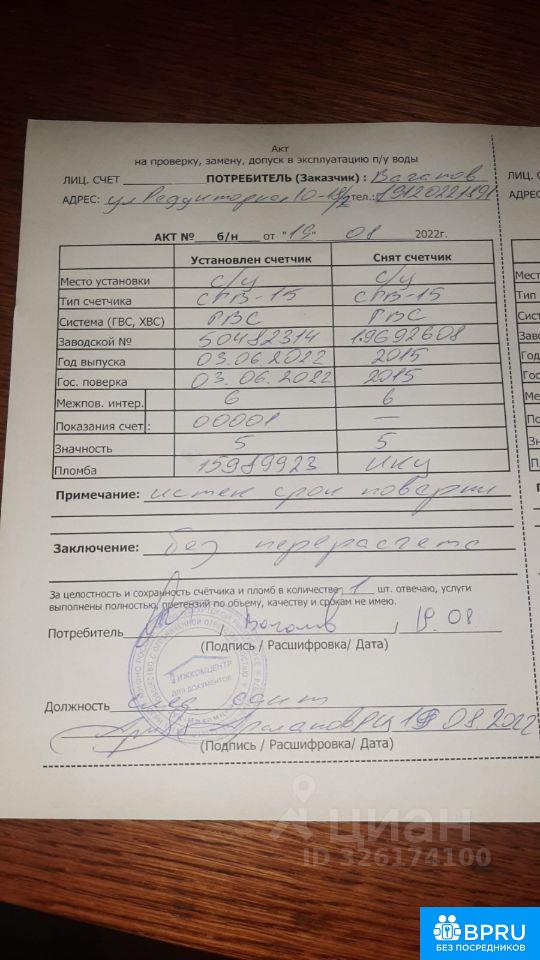 Акт
на проверку, замену, допуск в эксплуатацию п/у воды
ЛИЦ. СЧЕТ ПОТРЕБИТЕЛЬ (Заказчик) : Вагапов
АДРЕС: ул Редукторная 10- тел.:
АКТ № б/н от "19" 08 2022г.
Установлен счетчик Снят счетчик
Место установки с/у с/у
Тип счетчика СГВ-15 СГВ-15
Система (ГВС, ХВС) ГВС ГВС
Заводской № 50482314 19692608
Год выпуска 03.06.2022 2015
Гос. поверка 03.06.2022 2015
Межпов. интер. 6 6
Показания счет.: 00001 —
Значность 5 5
Пломба 15989923 ИКЦ
Примечание: истек срок поверки
Заключение: без перерасчета
За целостность и сохранность счётчика и пломб в количестве 1 шт. отвечаю, услуги
выполнены полностью, претензий по объему, качеству и срокам не имею.
Потребитель / Вагапов / 19.08.
(Подпись / Расшифровка/ Дата)
ИЖКОМЦЕНТР
ДЛЯ ДОКУМЕНТОВ
Должность слесарь
19.08.2022
(Подпись / Расшифровка/ Дата)
ЛИЦ. С
АДРЕС
Мест
Тип
Сист
Заво
Год
Гос.
Ме
По
Зн
П
циан
ID 326174100
BPRU
БЕЗ ПОСРЕДНИКОВ